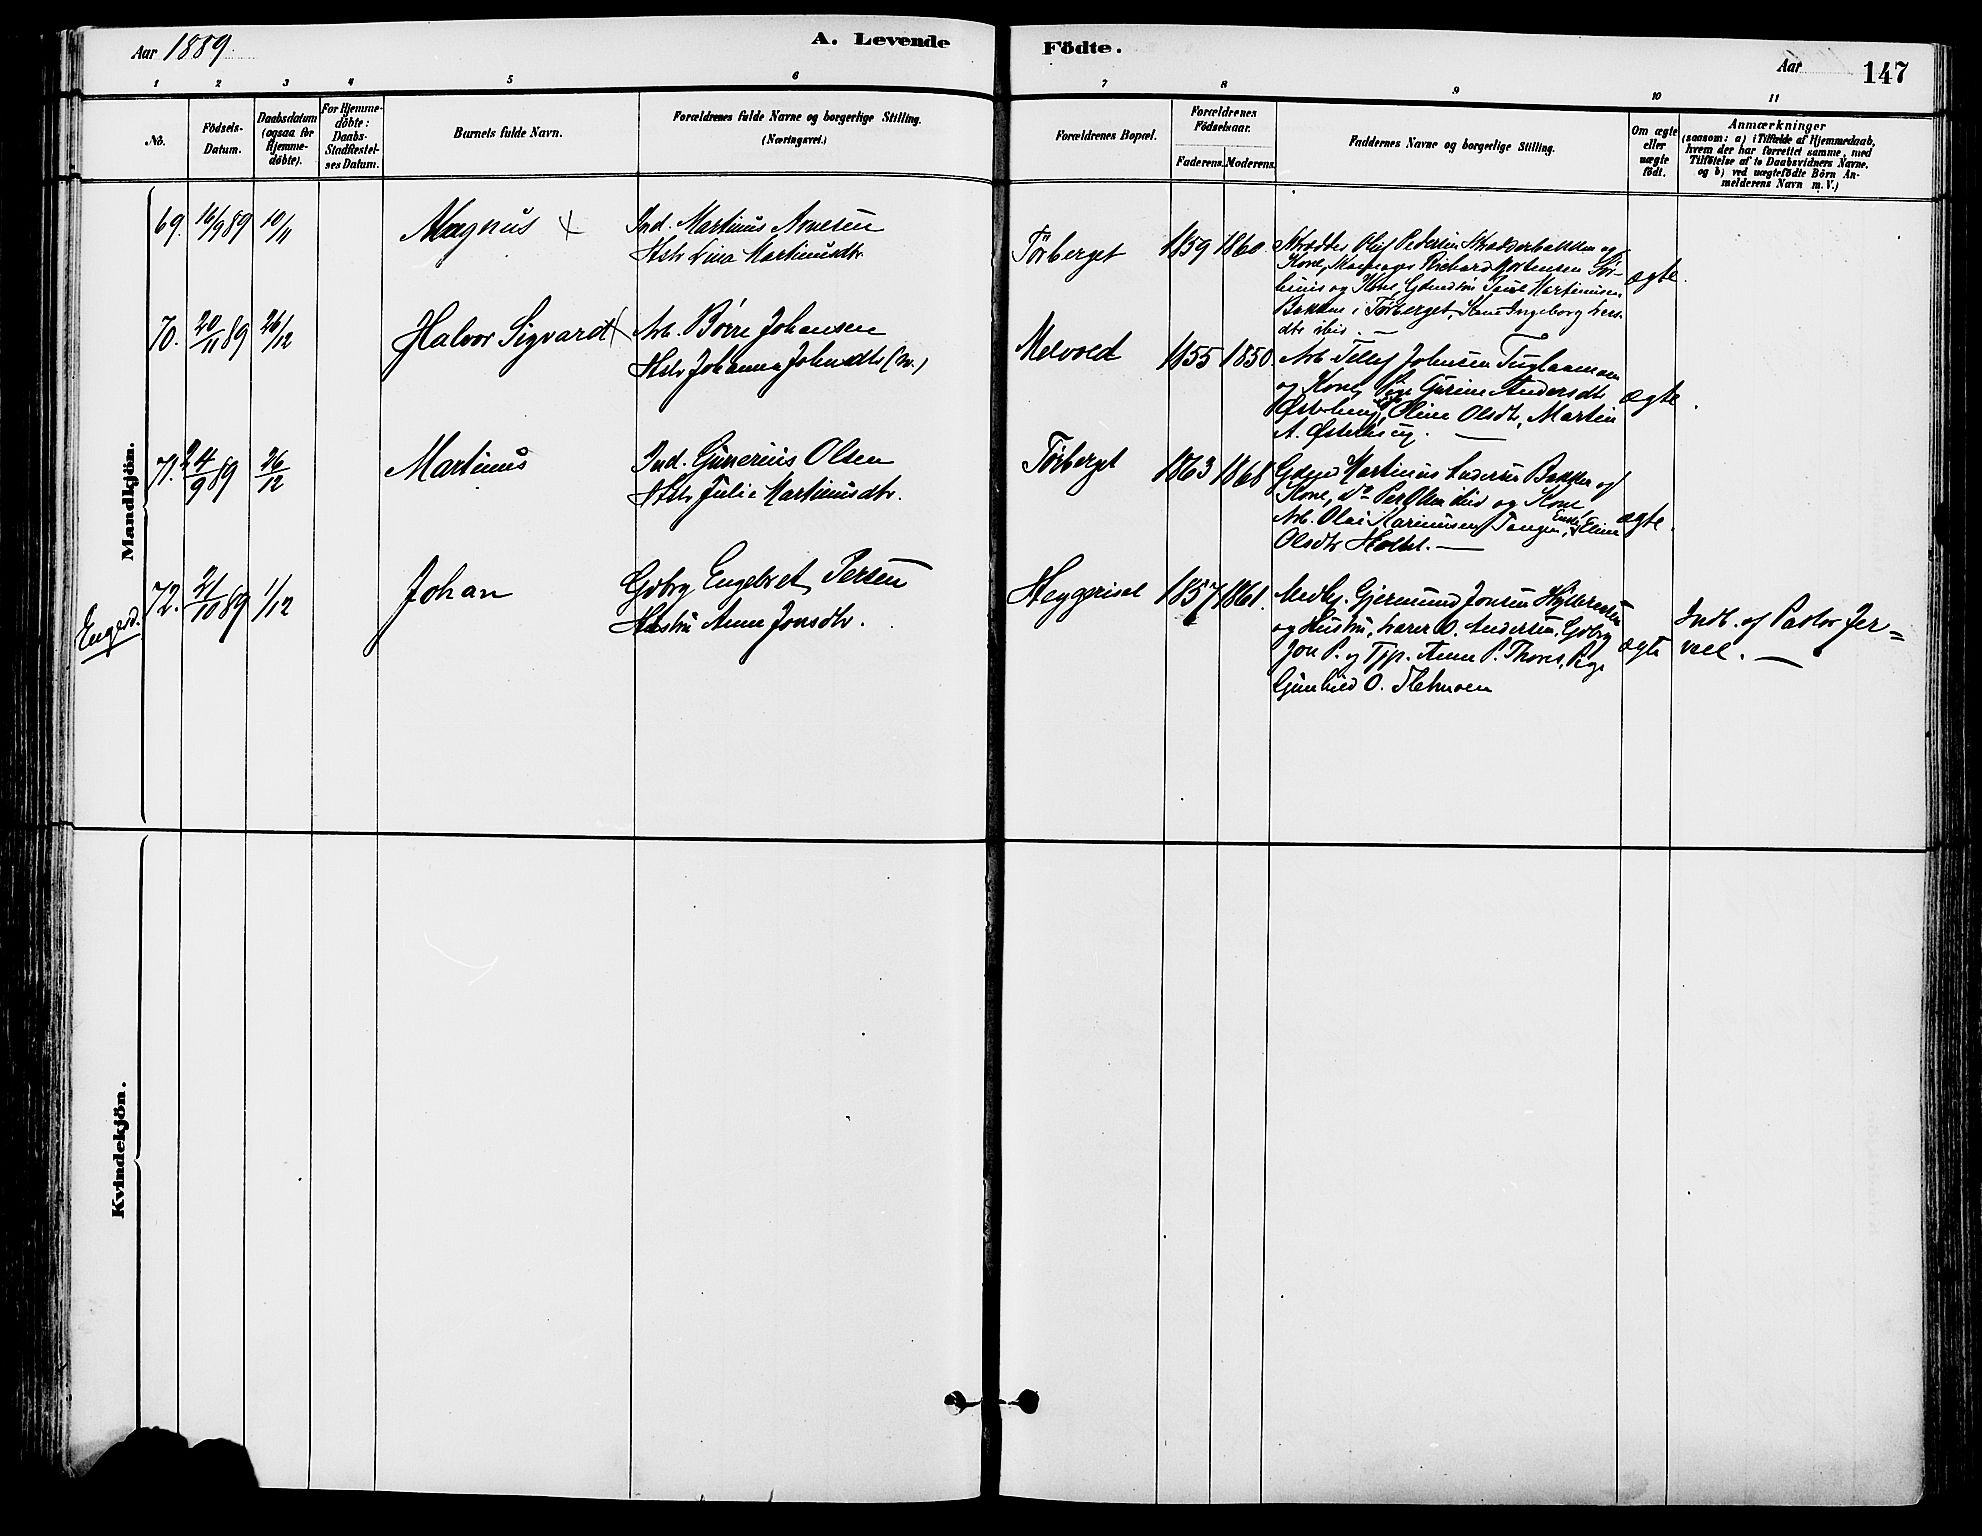 Aar 1889.
A. Levende Födte.
Aar
147
1 2 3 4 5 6 7 8 9 10 11
No.
Födsels-
Datum.
Daabsdatum
(ogsaa for
Hjemme-
döbte).
For Hjemme-
döbte:
Daabs-
Stadfæstel-
ses Datum.
Barnets fulde Navn.
Forældrenes fulde Navne og borgerlige Stilling.
(Næringsvei.)
Forældrenes Bopæl.
Forældrenes
Födselsaar.
Faderens. Moderens.
Faddernes Navne og borgerlige Stilling.
Om ægte
eller
uægte
födt.
Anmærkninger
(saasom: a) i Tilfælde af Hjemmedaab,
hvem der har forrettet samme, med
Tilföielse af to Daabsvidners Navne.
og b) ved uægtefödte Börn An-
melderens Navn m. V.)
Mandkjön.
69. 16/9 89 10/11 Magnus × Ind. Martinus Arnesen
Hstr Lina Martinusdtr.
Törberget 1859 1860.
Olef Pedersen og
Kone, Richard Mortensen
og Kone, Martinusen
Bakken i Törberget, Ingeborg
ibid. —
ægte.
70. 20/11 89 26/12 Halvor Sigvardt × Arb. Börre Johansen
Hstr Johanne Johndtr
Melvold 1855 1850.
Arb. Tellef Johnsen
og Kone, Pige Gurine Andersdtr
Oline Olsdtr, Martin
A. —
ægte.
71. 24/9 89 26/12 Martinus Ind. Gunerius Olsen
Hstr Julie Martinusdtr.
Törberget 1863 1868
Martinus Andersen Bakken og
Kone, do Per Olsen ibid og Kone
Arb. Olai Karinusen Tangen, Eline
Olsdtr Holtet. —
ægte.
Engerd.
72. 21/10 89 1/12 Johan Gdbrg Engebret Persen
Hustru Anne Jonsdtr.
Heggeriset 1857 1861.
Medhj. Gjermund Jonsen
og Hustru, O. Andersen, Gdbrg
Jon P. og Tjp. Anne P. Pige
Gunhild O.
ægte
Indb. af Pastor Jer=
vell. —
Kvindekjön.